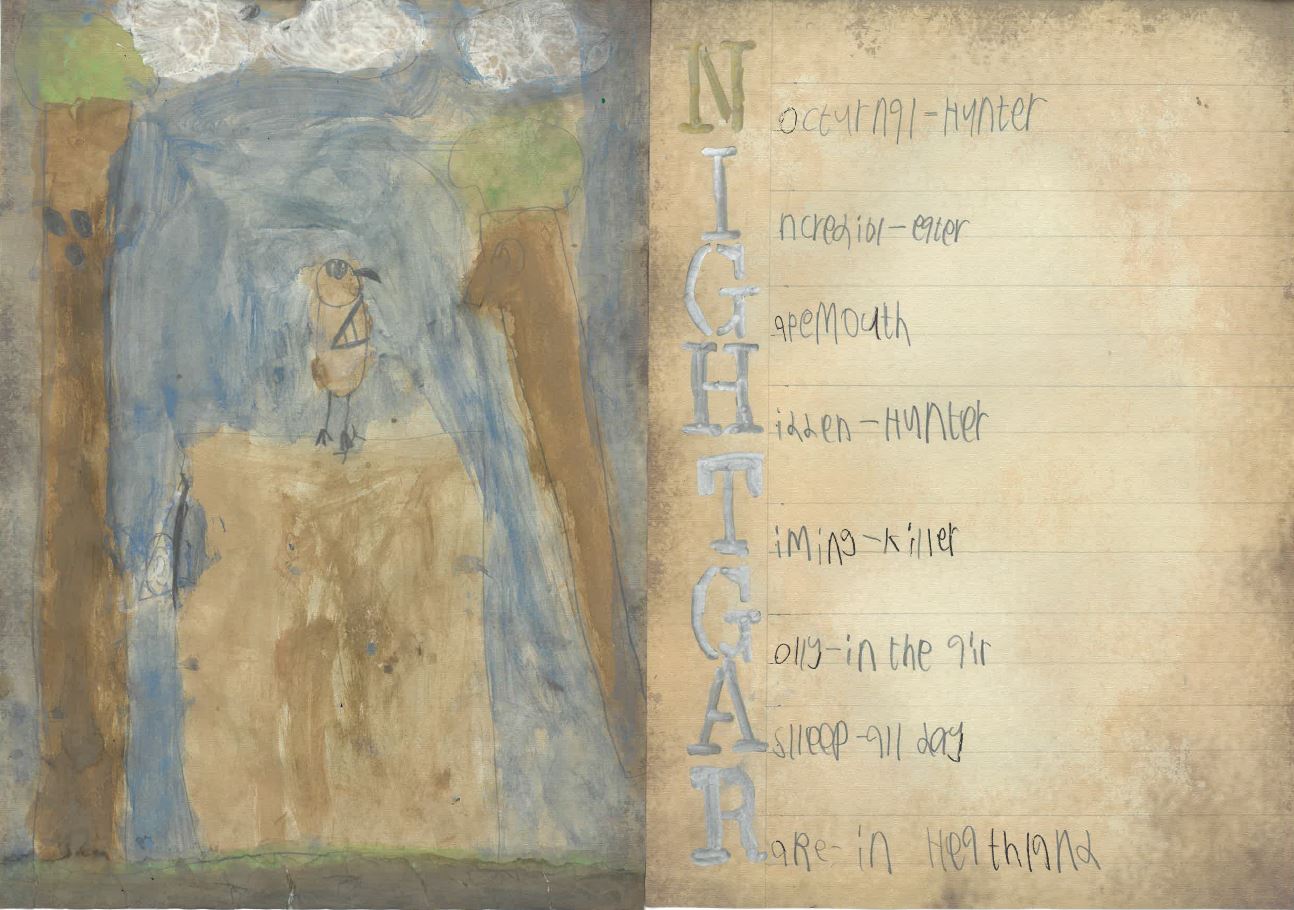 Nocturnal-Hunter
Incredibl-eater
Gapemouth
Hidden-Hunter
Timing-killer
Golly-in the air
Aslleep-all day
Rare-in Heathland